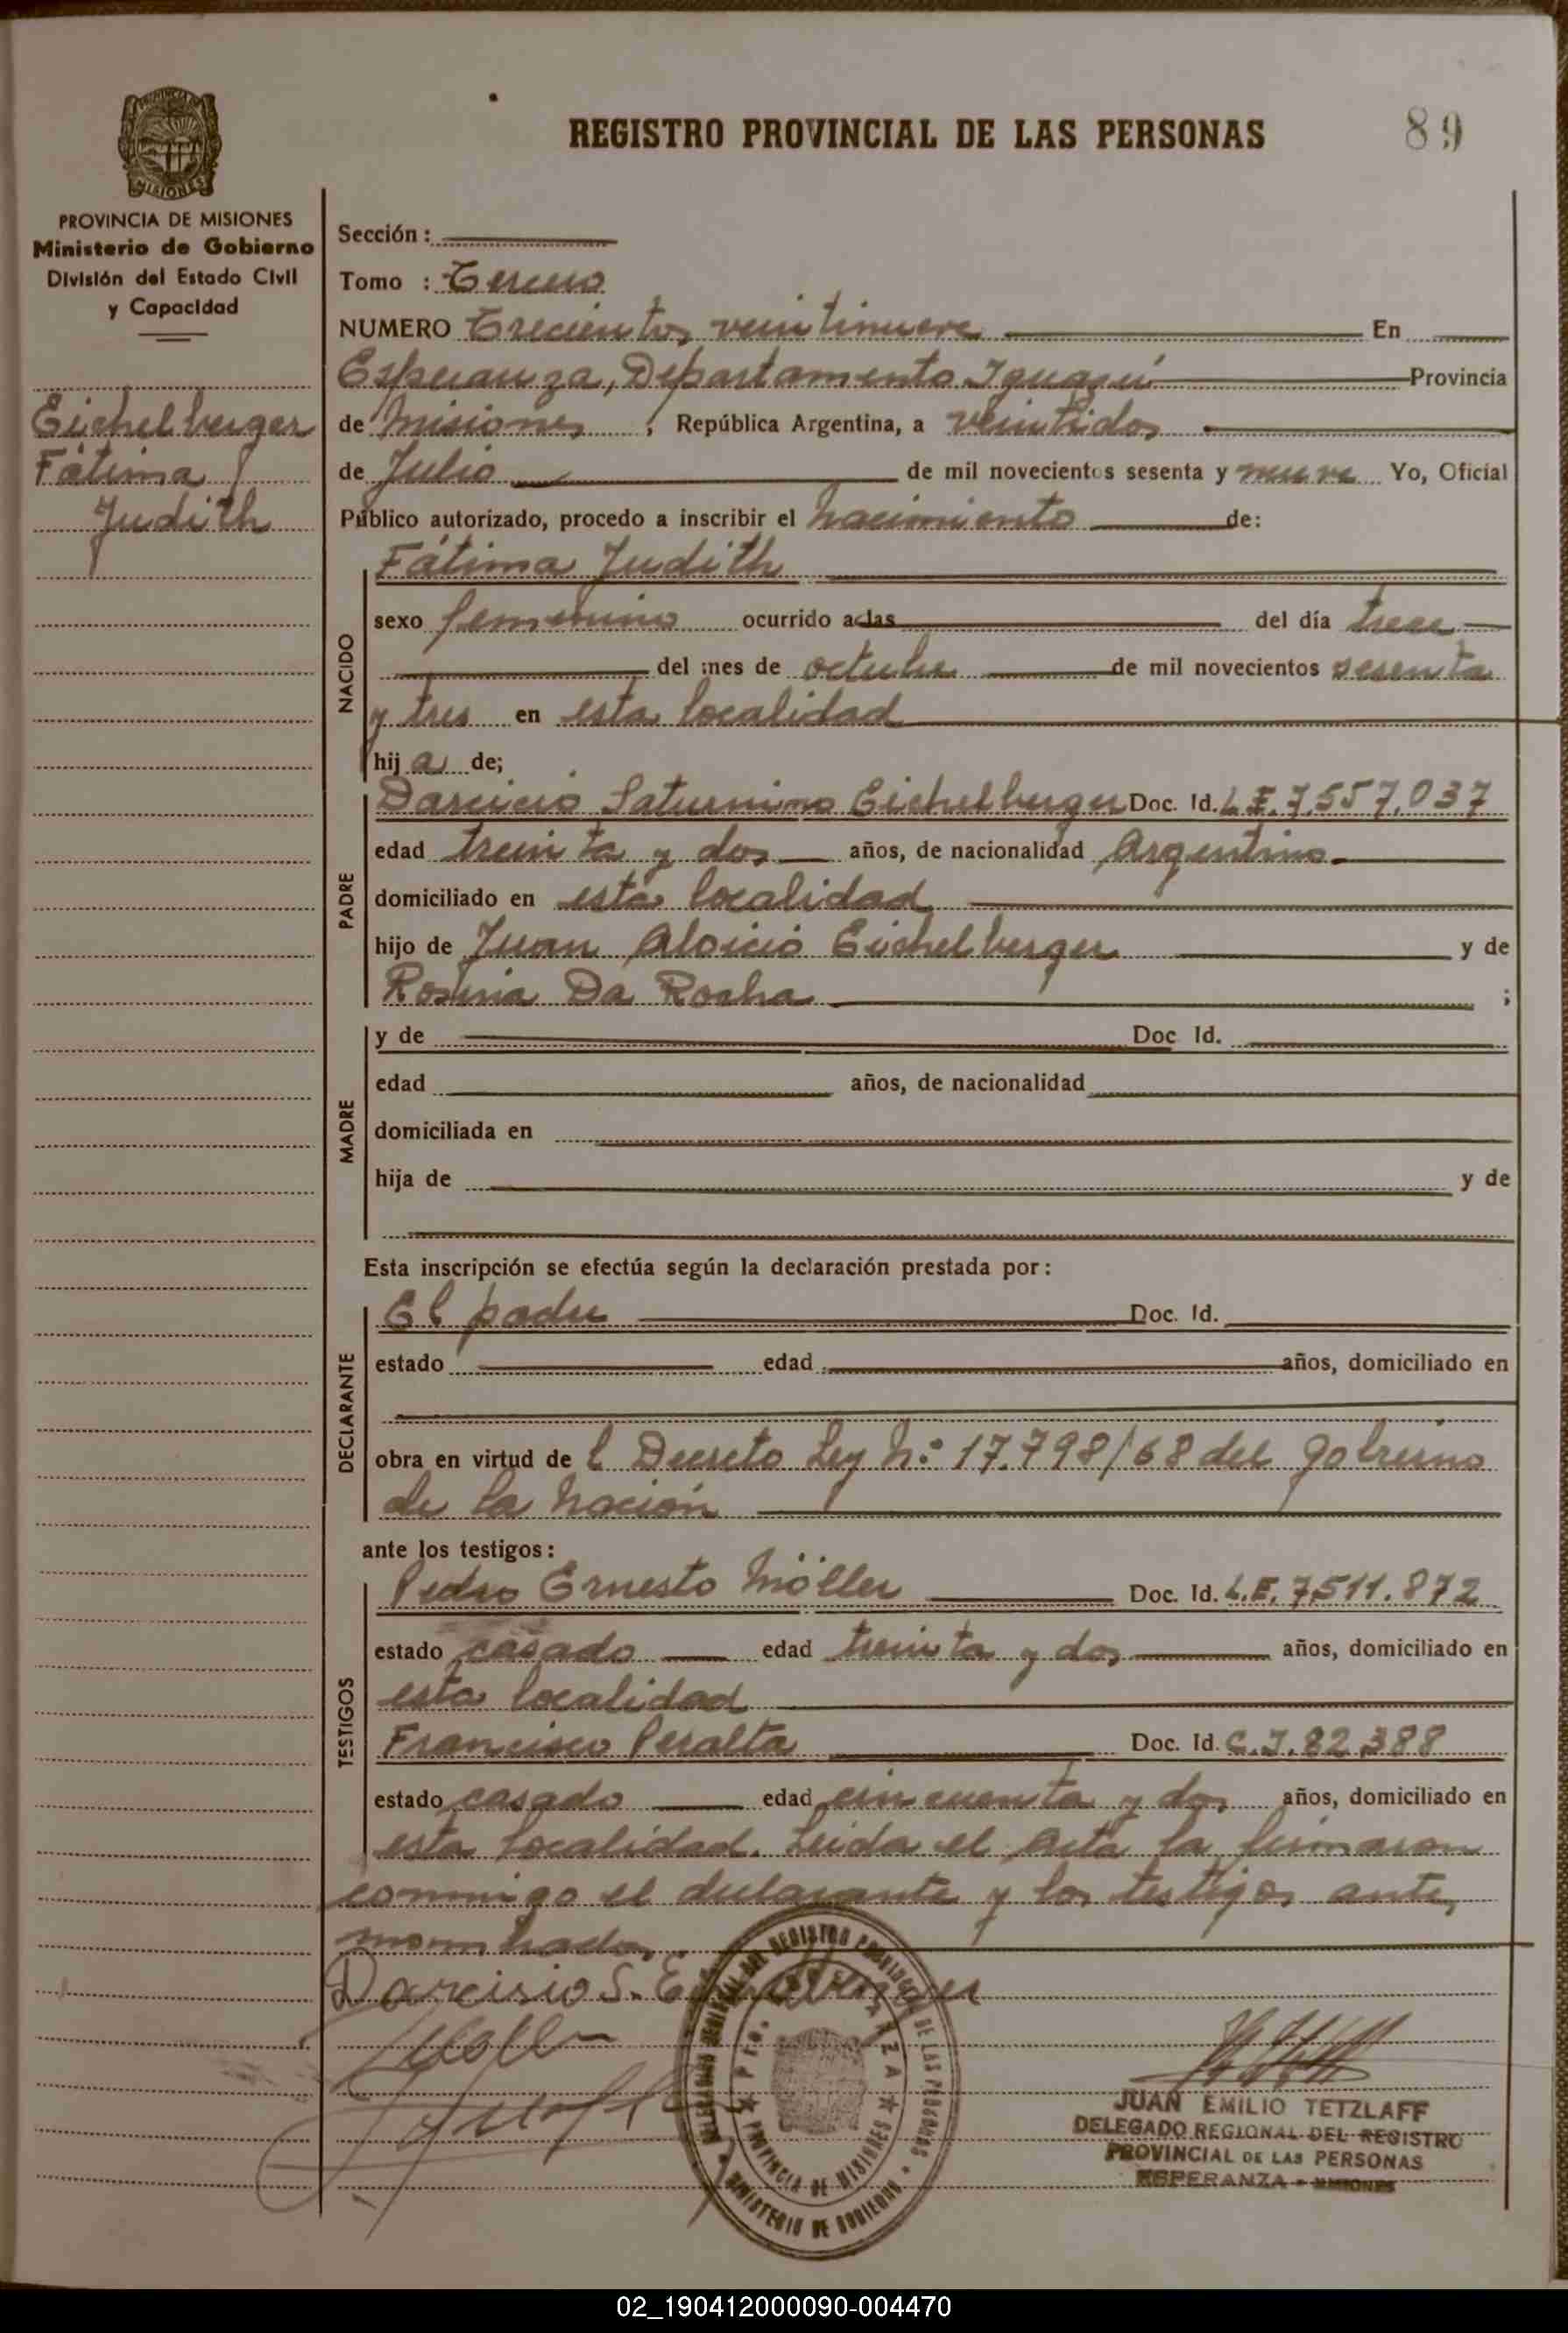 REGISTRO PROVINCIAL DE LAS PERSONAS
89
PROVINCIA DE MISIONES
MISIONES
PROVINCIA DE MISIONES
Ministerio de Gobierno
División del Estado Civil
y Capacidad
Eichelberger
Fátima
Judith
Sección :
Tomo : Tercero
NUMERO Trecientos veintinueve En
Esperanza, Departamento Iguazú Provincia
de Misiones, República Argentina, a veintidos
de Julio de mil novecientos sesenta y nueve Yo, Oficial
Público autorizado, procedo a inscribir el nacimiento de:
NACIDO
Fátima Judith
sexo femenino ocurrido a las del día trece
del mes de octubre de mil novecientos sesenta
y tres en esta localidad
hij a de;
PADRE
Darcicio Saturnino Eichelberger Doc. Id. L.E. 7.557.037
edad treinta y dos años, de nacionalidad Argentino.
domiciliado en esta localidad
hijo de Juan Aloicio Eichelberger y de
Rosina Da Rocha ;
MADRE
y de Doc Id.
edad años, de nacionalidad
domiciliada en
hija de y de
Esta inscripción se efectúa según la declaración prestada por :
DECLARANTE
El padre Doc. Id.
estado edad años, domiciliado en
obra en virtud de l Decreto Ley N:º 17.798/68 del gobierno
de la Nación
ante los testigos :
TESTIGOS
Pedro Ernesto Möller Doc. Id. L.E. 7.511.872
estado casado edad treinta y dos años, domiciliado en
esta localidad
Francisco Peralta Doc. Id. C.I. 82.388
estado casado edad cincuenta y dos años, domiciliado en
esta localidad. Leida el Acta la firmaron
conmigo el declarante y los testigos ante
nombrados.
Darcisio S. Eichelberger
DELEGADO REGIONAL DEL REGISTRO PROVINCIAL DE LAS PERSONAS
MINISTERIO DE GOBIERNO
PTO. ESPERANZA
PROVINCIA DE MISIONES
JUAN EMILIO TETZLAFF
DELEGADO REGIONAL DEL REGISTRO
PROVINCIAL DE LAS PERSONAS
ESPERANZA - MISIONES
02_190412000090-004470